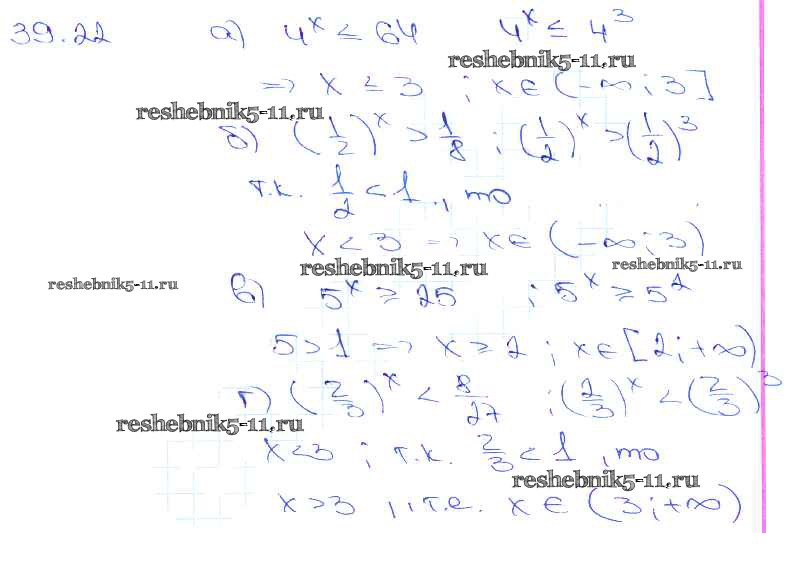 39.22 а) 4^x ≤ 64 4^x ≤ 4^3
reshebnik5-11.ru
=> x ≤ 3 ; x ∈ (-∞; 3]
reshebnik5-11.ru
б) (1/2)^x > 1/8 ; (1/2)^x > (1/2)^3
т.к. 1/2 < 1, то
x < 3 => x ∈ (-∞; 3)
reshebnik5-11.ru reshebnik5-11.ru
reshebnik5-11.ru
в) 5^x ≥ 25 ; 5^x ≥ 5^2
5 > 1 => x ≥ 2 ; x ∈ [2; +∞)
г) (2/3)^x < 8/27 ; (2/3)^x < (2/3)^3
reshebnik5-11.ru
x < 3 ; т.к. 2/3 < 1, то
reshebnik5-11.ru
x > 3, т.е. x ∈ (3; +∞)